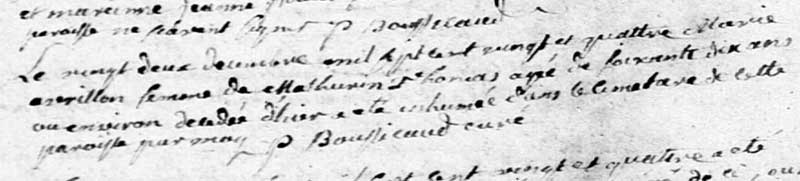 et marianne jeanne
paroisse ne savent signer p Boussicaud
Le vingt deux decembre mil sept cent vingt et quattre Marie
averillon femme de Mathurin Thomas agé de soixante dix ans
ou environ decedée d'hier a eté inhumée dans le Cimetiere de cette
paroisse par moy p Boussicaud curé
sept cent vingt et quattre a eté